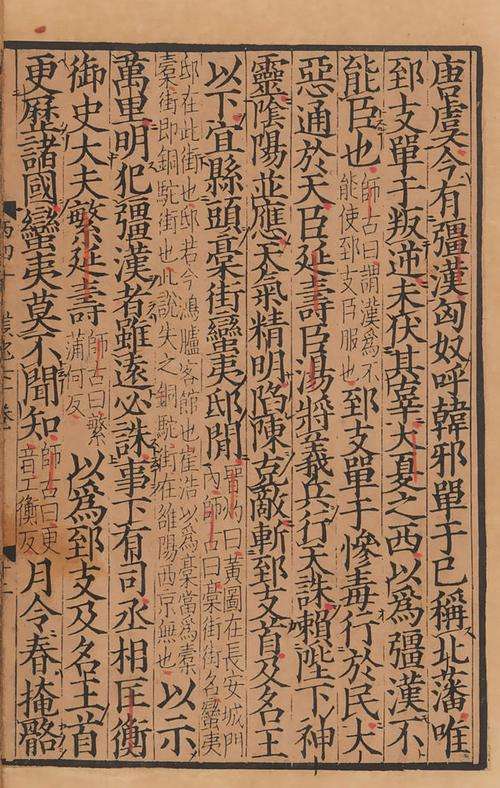 唐虞今有彊漢匈奴呼韓邪單于已稱北藩唯
郅支單于叛逆未伏其辜大夏之西以爲彊漢不
能臣也師古曰謂漢爲不能使郅支臣服也郅支單于慘毒行於民大
惡通於天臣延壽臣湯將義兵行天誅賴陛下神
靈陰陽並應天氣精明陷陳克敵斬郅支首及名王
以下宜縣頭槀街蠻夷邸間晉灼曰黃圖在長安城門內師古曰槀街街名蠻夷
邸在此街也邸若今鴻臚客館也崔浩以爲槀當爲橐橐街即銅駝街也此說失之銅駝街在雒陽西京無也以示
萬里明犯彊漢者雖遠必誅事下有司丞相匡衡
御史大夫繁延壽師古曰繁蒲何反以爲郅支及名王首
更歷諸國蠻夷莫不聞知師古曰更音工衡反月令春掩骼